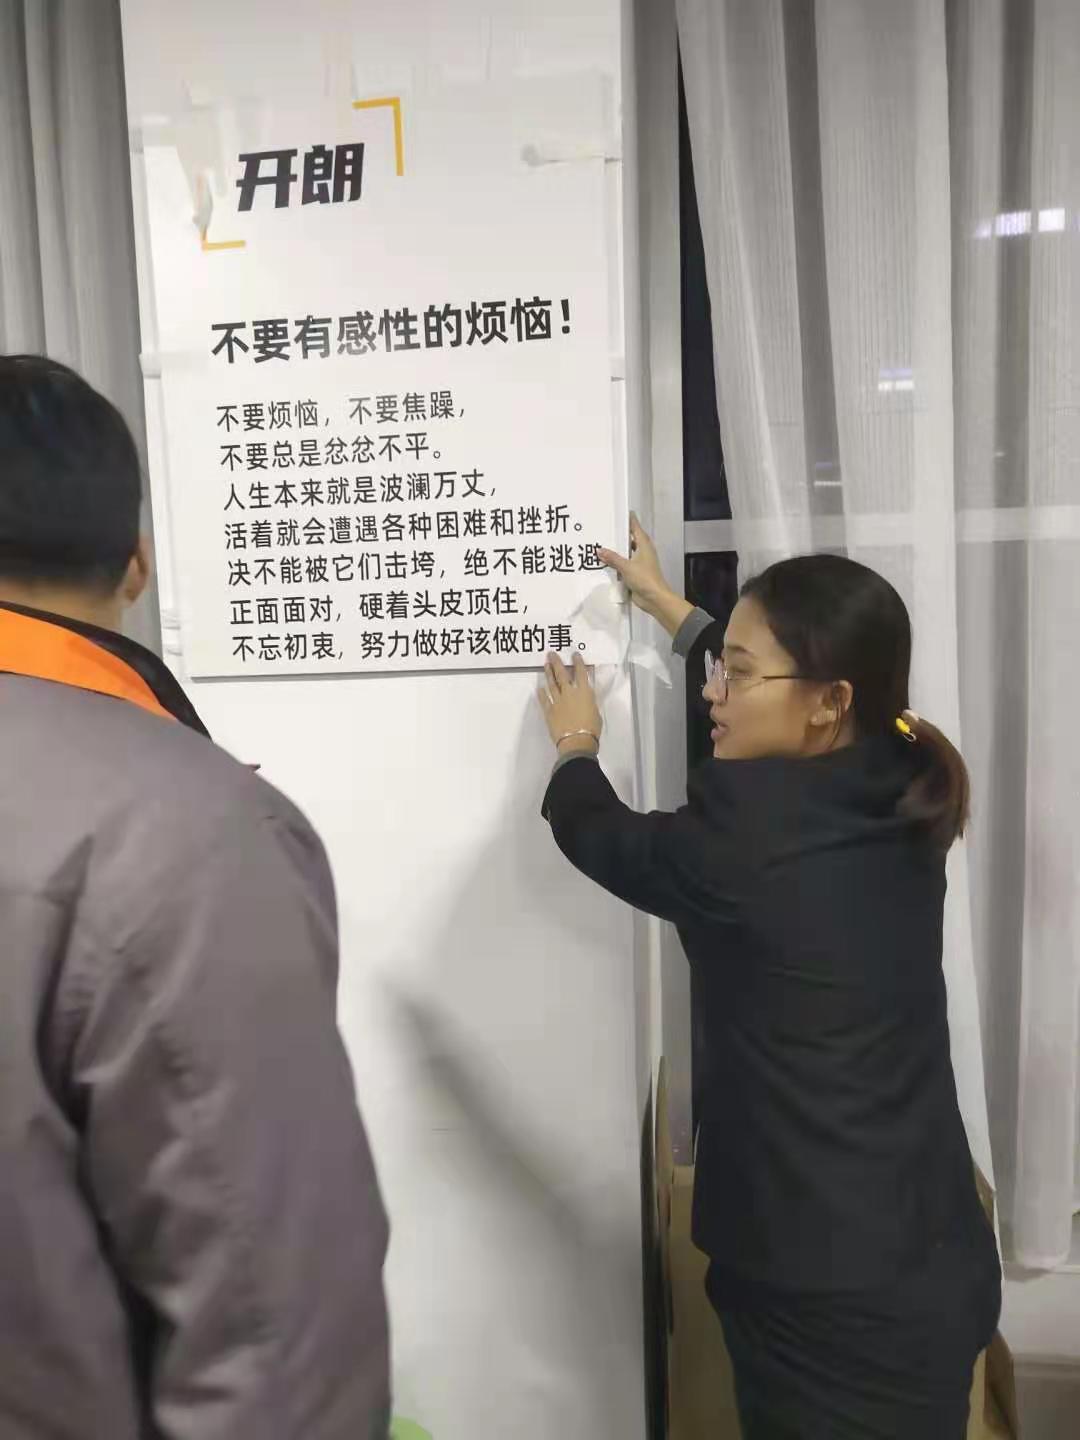 开朗
不要有感性的烦恼！
不要烦恼，不要焦躁，
不要总是忿忿不平。
人生本来就是波澜万丈，
活着就会遭遇各种困难和挫折。
决不能被它们击垮，绝不能逃避
正面面对，硬着头皮顶住，
不忘初衷，努力做好该做的事。